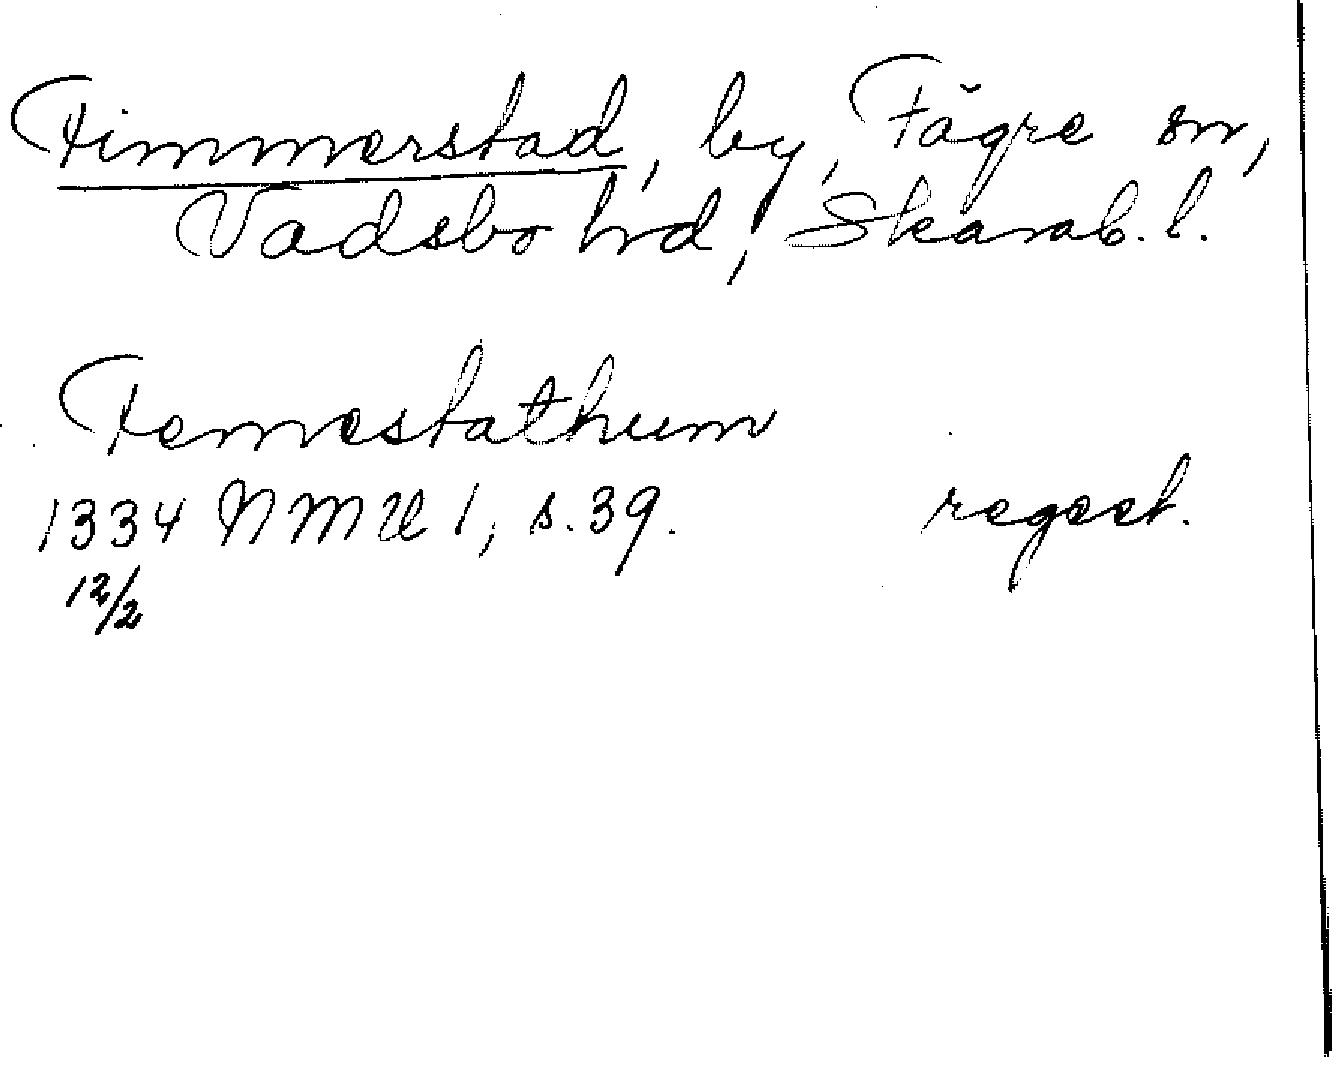 Fimmerstad, by, Fägre sn,
Vadsbo hrd, Skarab. l.
Femestathum
1334 NMU 1, s. 39. regest.
12/2